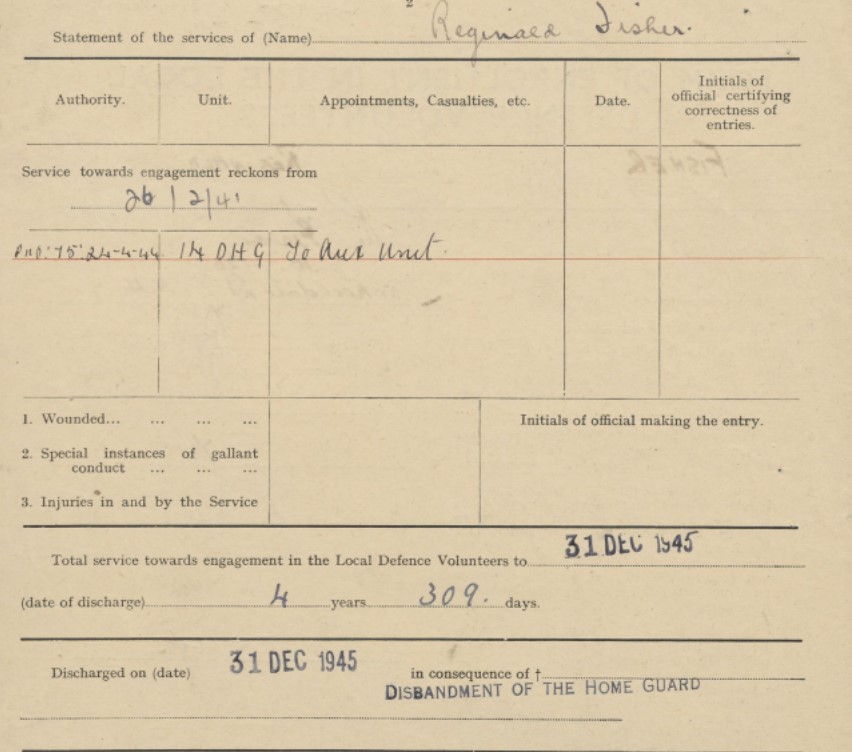 2
Statement of the services of (Name) Reginald Fisher.
Authority. Unit. Appointments, Casualties, etc. Date. Initials of official certifying correctness of entries.
Service towards engagement reckons from
26/2/41
'75' 24-4-44 14 DHG To Aux Unit.
1. Wounded... ... ... ...
Initials of official making the entry.
2. Special instances of gallant
conduct ... ... ...
3. Injuries in and by the Service
Total service towards engagement in the Local Defence Volunteers to 31 DEC 1945
(date of discharge) 4 years 309. days.
Discharged on (date) 31 DEC 1945 in consequence of †
DISBANDMENT OF THE HOME GUARD